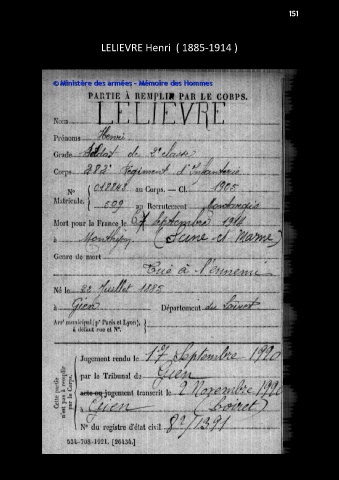 151
LELIEVRE Henri ( 1885-1914 )
© Ministère des armées - Mémoire des Hommes
PARTIE À REMPLIR PAR LE CORPS.
Nom LELIEVRE
Prénoms Henri
Grade Soldat de 2e classe
Corps 282e Régiment d'Infanterie
N° 018248 au Corps. — Cl. 1905
Matricule. 009 au Recrutement Montargis
Mort pour la France le 6 Septembre 1914
à Monthyon (Seine et Marne)
Genre de mort
Tué à l'ennemi
Né le 22 Juillet 1885
à Gien Département du Loiret
Arrt municipal (pr Paris et Lyon),
à défaut rue et N°.
Cette partie
n'est pas à remplir
par le Corps.
Jugement rendu le 17 Septembre 1920
par le Tribunal de Gien
acte ou jugement transcrit le 2 Novembre 1920
à Gien (Loiret)
N° du registre d'état civil 82/1391
534-708-1921. [26434.]